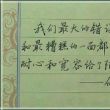 我们最大的错误
和最糟糕的一面都
耐心和宽容给了陌